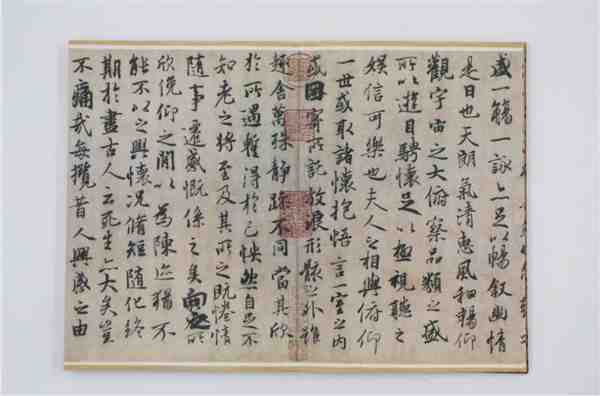 盛一觴一詠亦足以暢叙幽情
是日也天朗氣清惠風和暢仰
觀宇宙之大俯察品類之盛
所以遊目騁懷足以極視聽之
娛信可樂也夫人之相與俯仰
一世或取諸懷抱悟言一室之内
或因寄所託放浪形骸之外雖
趣舍萬殊静躁不同當其欣
於所遇蹔得於己怏然自足不
知老之將至及其所之既惓情
隨事遷感慨係之矣向之所
欣俛仰之閒以為陳迹猶不
能不以之興懷況脩短隨化終
期於盡古人云死生亦大矣豈
不痛哉每攬昔人興感之由